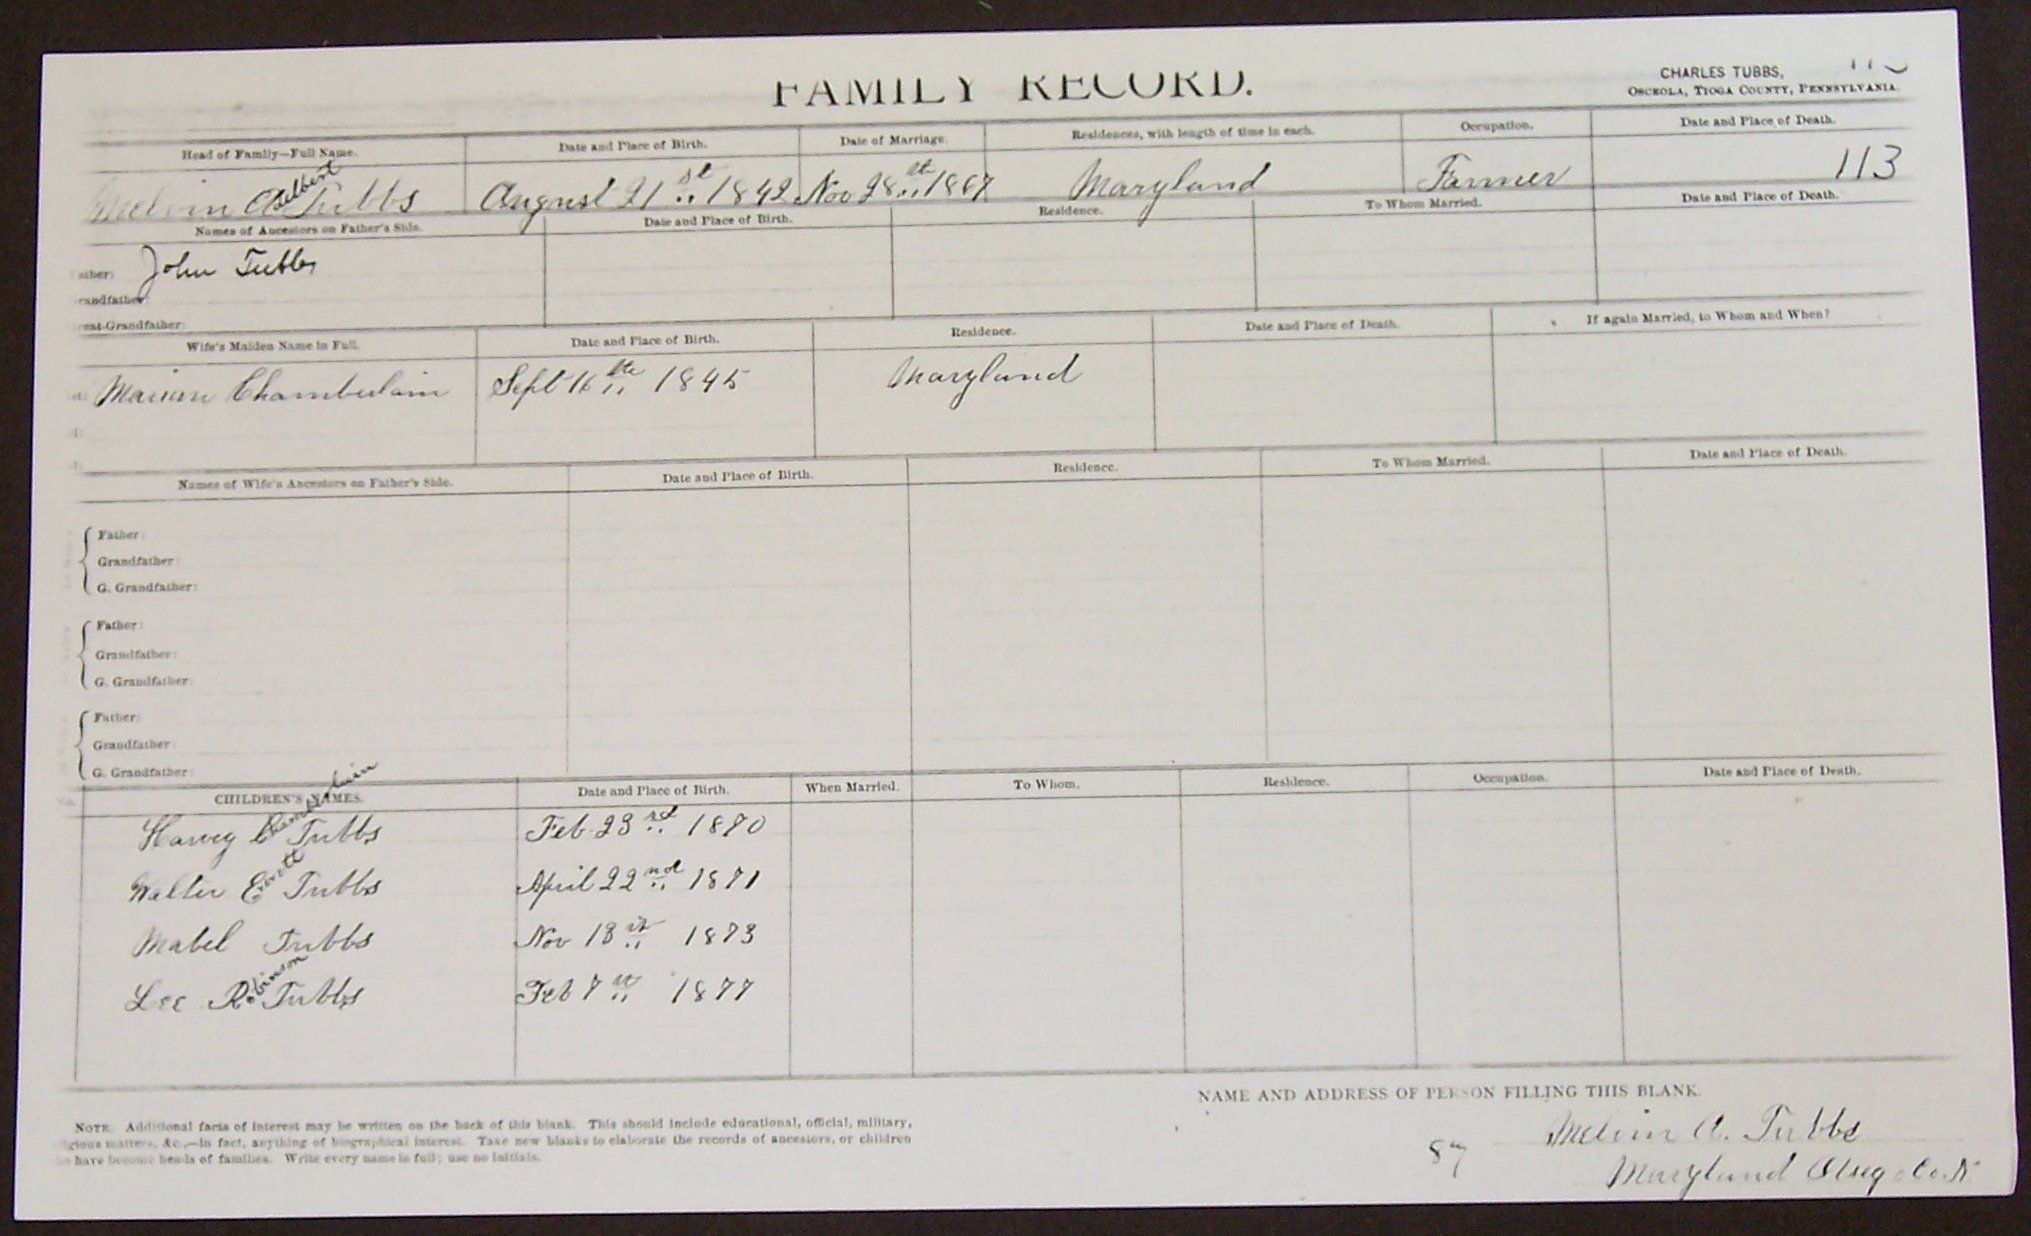 FAMILY RECORD.
CHARLES TUBBS,
OSCEOLA, TIOGA COUNTY, PENNSYLVANIA.
Head of Family—Full Name. Date and Place of Birth. Date of Marriage. Residences, with length of time in each. Occupation. Date and Place of Death.
Adelbert
Melvin A Tubbs August 21st 1842 Nov 28th 1867 Maryland Farmer 113
Names of Ancestors on Father's Side. Date and Place of Birth. Residence. To Whom Married. Date and Place of Death.
ather: John Tubbs
randfather:
reat-Grandfather:
Wife's Maiden Name in Full. Date and Place of Birth. Residence. Date and Place of Death. If again Married, to Whom and When?
Marion Chamberlain Sept 16th 1845 Maryland
Names of Wife's Ancestors on Father's Side. Date and Place of Birth. Residence. To Whom Married. Date and Place of Death.
Father:
Grandfather:
G. Grandfather:
Father:
Grandfather:
G. Grandfather:
Father:
Grandfather:
G. Grandfather:
CHILDREN'S NAMES. Date and Place of Birth. When Married. To Whom. Residence. Occupation. Date and Place of Death.
Harvey Chamberlain Tubbs Feb. 23rd 1870
Walter Everett Tubbs April 22nd 1871
Mabel Tubbs Nov 13th 1873
Lee Robinson Tubbs Feb 7th 1877
NAME AND ADDRESS OF PERSON FILLING THIS BLANK.
NOTE. Additional facts of interest may be written on the back of this blank. This should include educational, official, military,
igious matters, &c.,—in fact, anything of biographical interest. Take new blanks to elaborate the records of ancestors, or children
have become heads of families. Write every name in full; use no initials.
Melvin A. Tubbs
Maryland Otsego Co. N